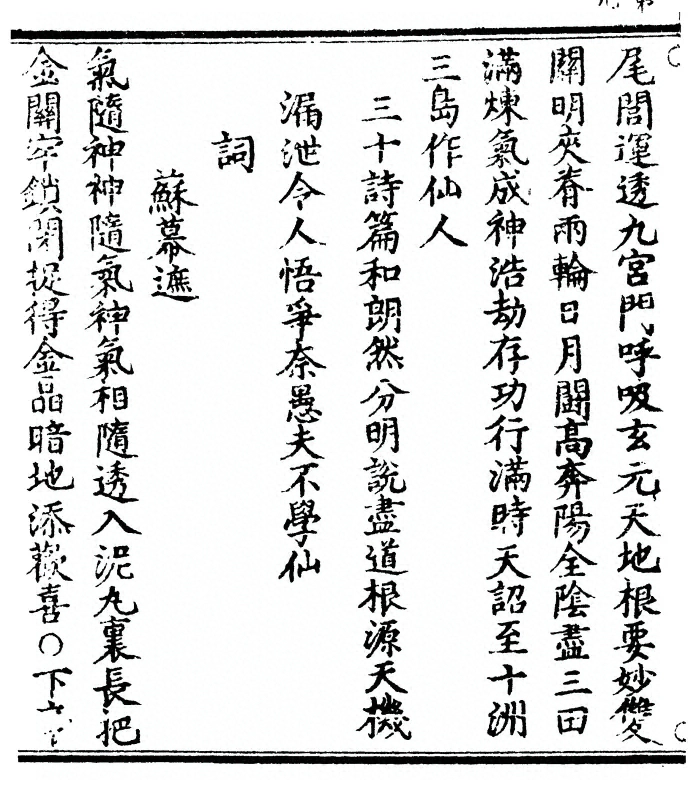 尾閭運透九宮門呼吸玄元天地根要妙雙
關明夾脊兩輪日月鬬高奔陽全陰盡三田
滿煉氣成神浩劫存功行滿時天詔至十洲
三島作仙人
三十詩篇和朗然分明說盡道根源天機
漏泄令人悟爭奈愚夫不學仙
詞
蘇幕遮
氣隨神神隨氣神氣相隨透入泥丸裏長把
金關牢鎖閉捉得金晶暗地添歡喜○下